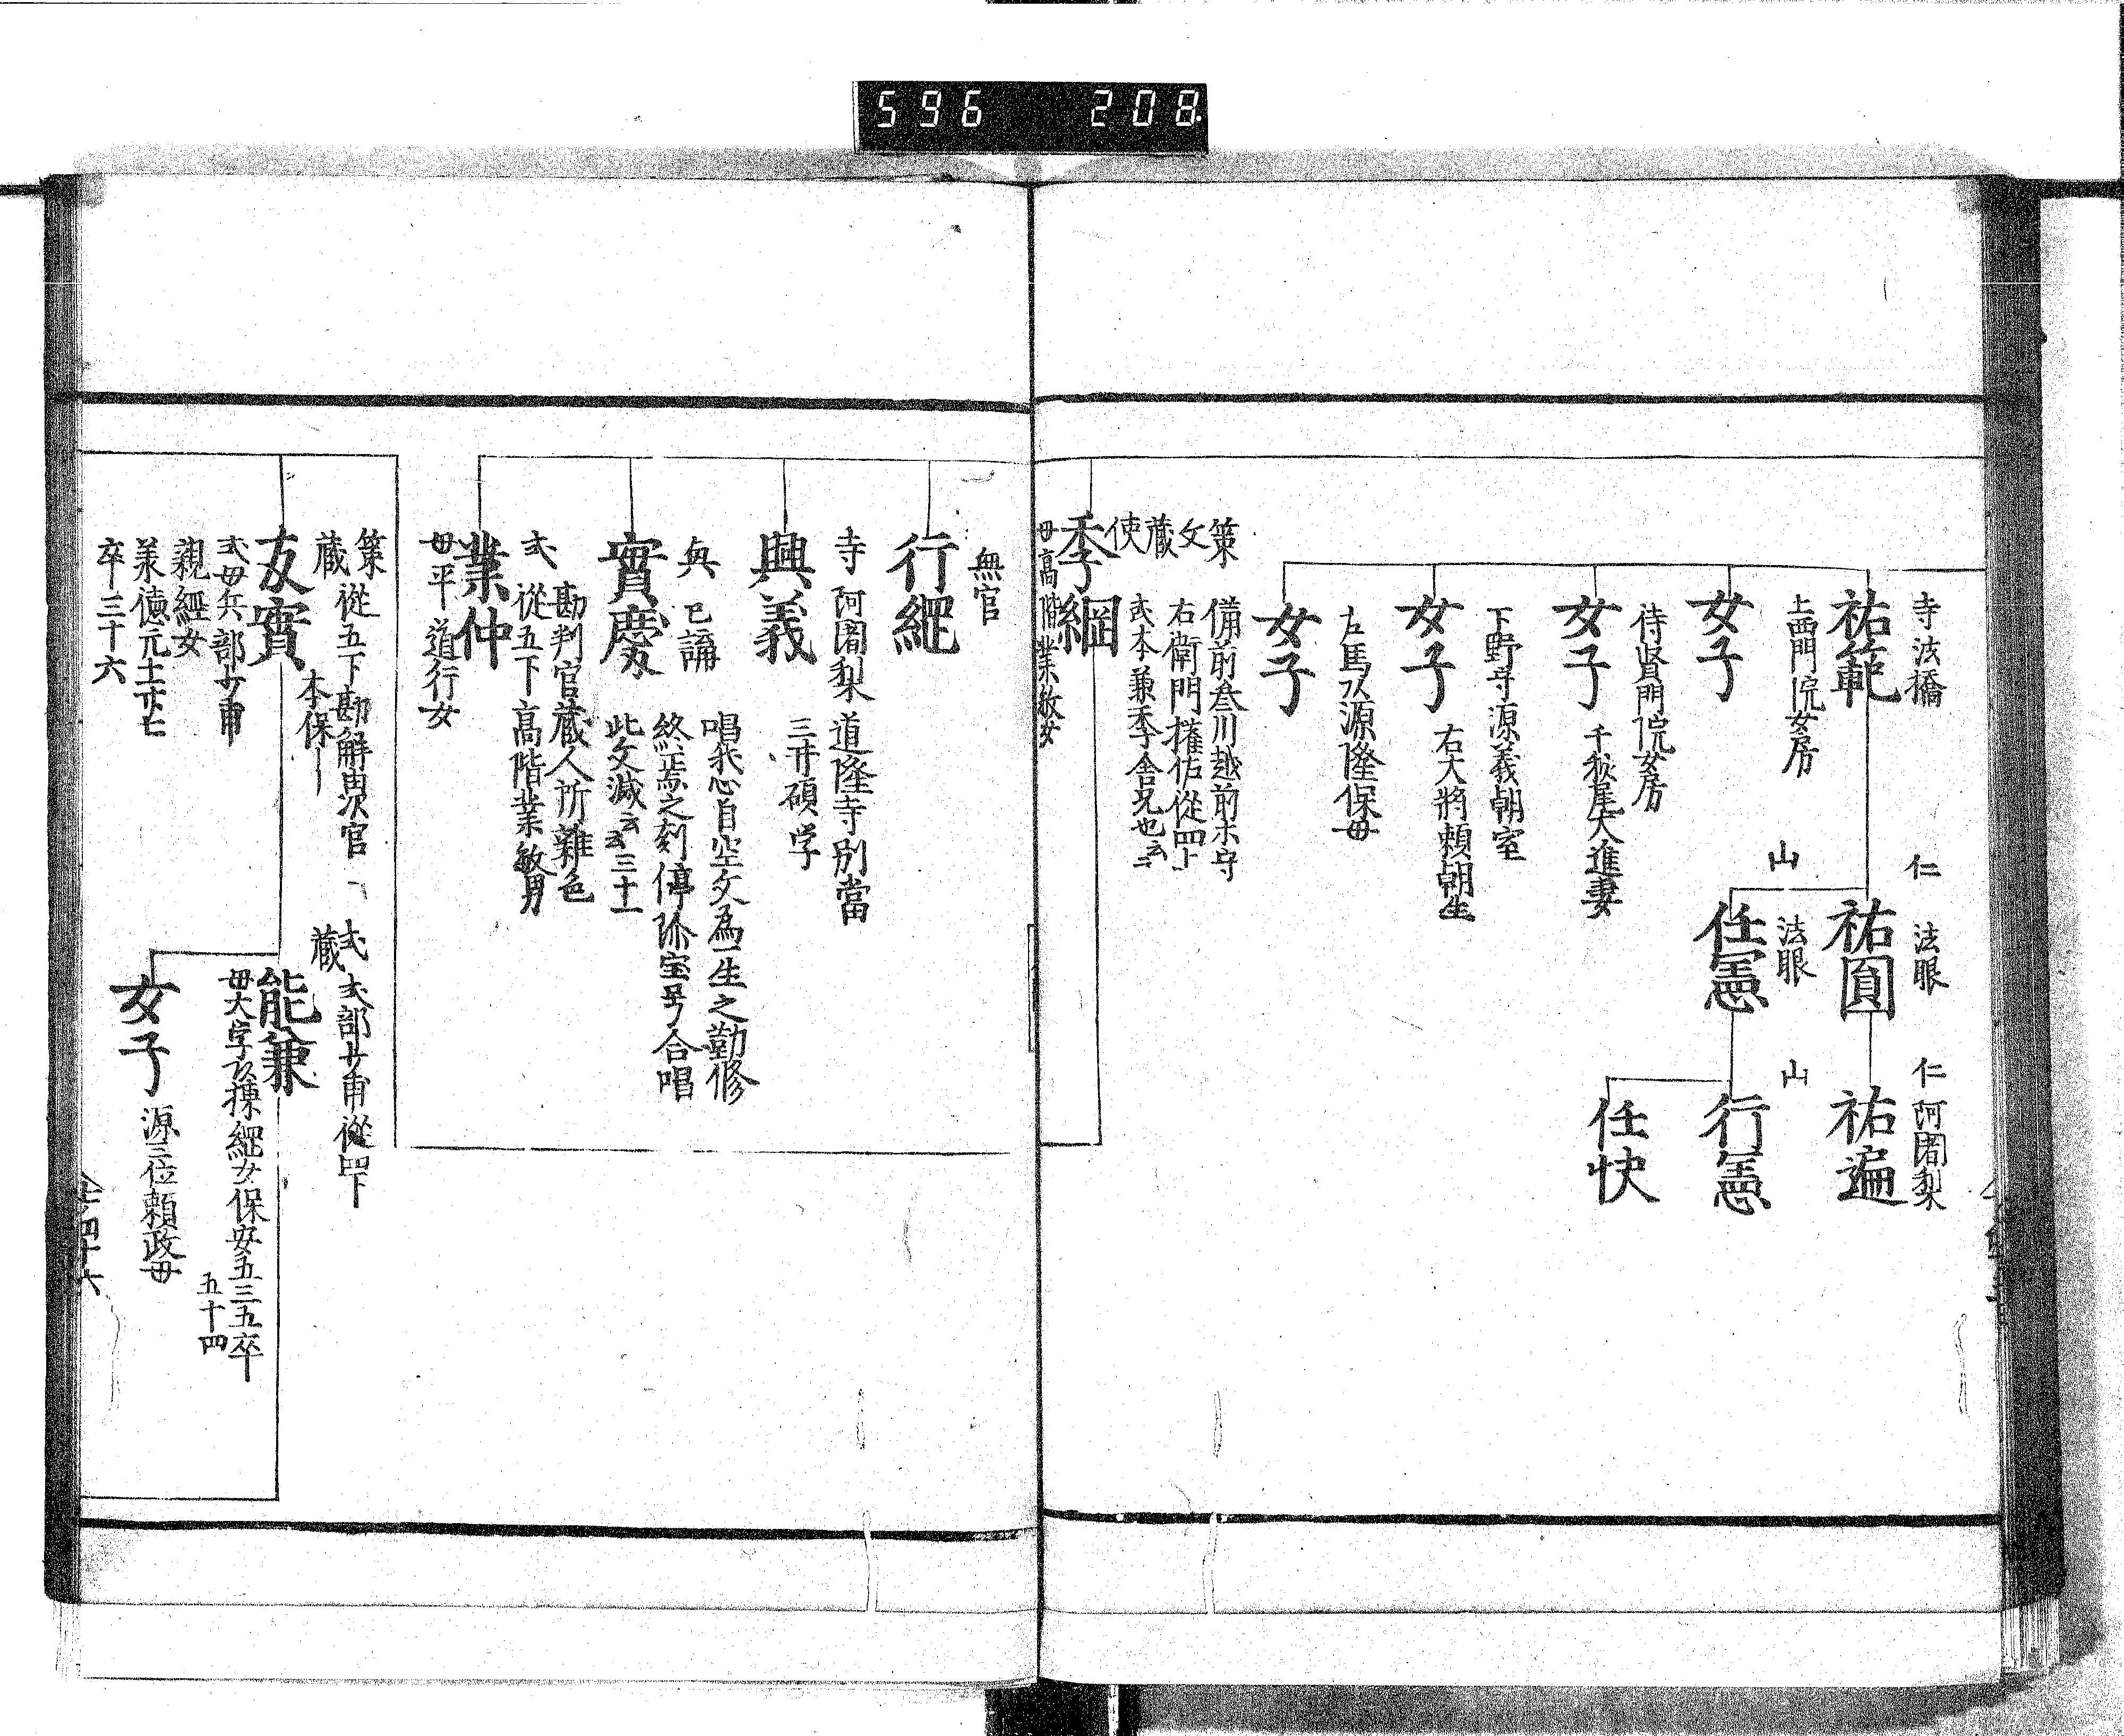 596 208
寺 法橋
祐範
仁 法眼
祐圓
仁 阿闍梨
祐遍
山 法眼
任憲
山
行憲
任快
上西門院女房
女子
待賢門院女房
女子
千秋尾大進妻
下野守源義朝室
女子
右大将頼朝生
左馬頭源隆保母
女子
策
文
蔵
使
備前叁川越前木守
右衛門権佐從四上
式本兼季舎兄也云々
季綱
母高階業敏女
無官
行經
寺 阿闍梨 道隆寺別當
三井碩学
興義
與 已講
唱我心自空文為一生之勤修
終焉之刻停弥宝号合唱
此文滅云々 三十一
實慶
勘判官蔵人所雜色
式 從五下高階業敏男
業仲
母平道行女
策
蔵 從五下勘解由次官
本保
友實
式母兵部少甫
親經女
卒三十六
式
蔵 式部少甫從四下
能兼
母大学頭棟經女保安五三五卒
五十四
女子 源三位頼政母